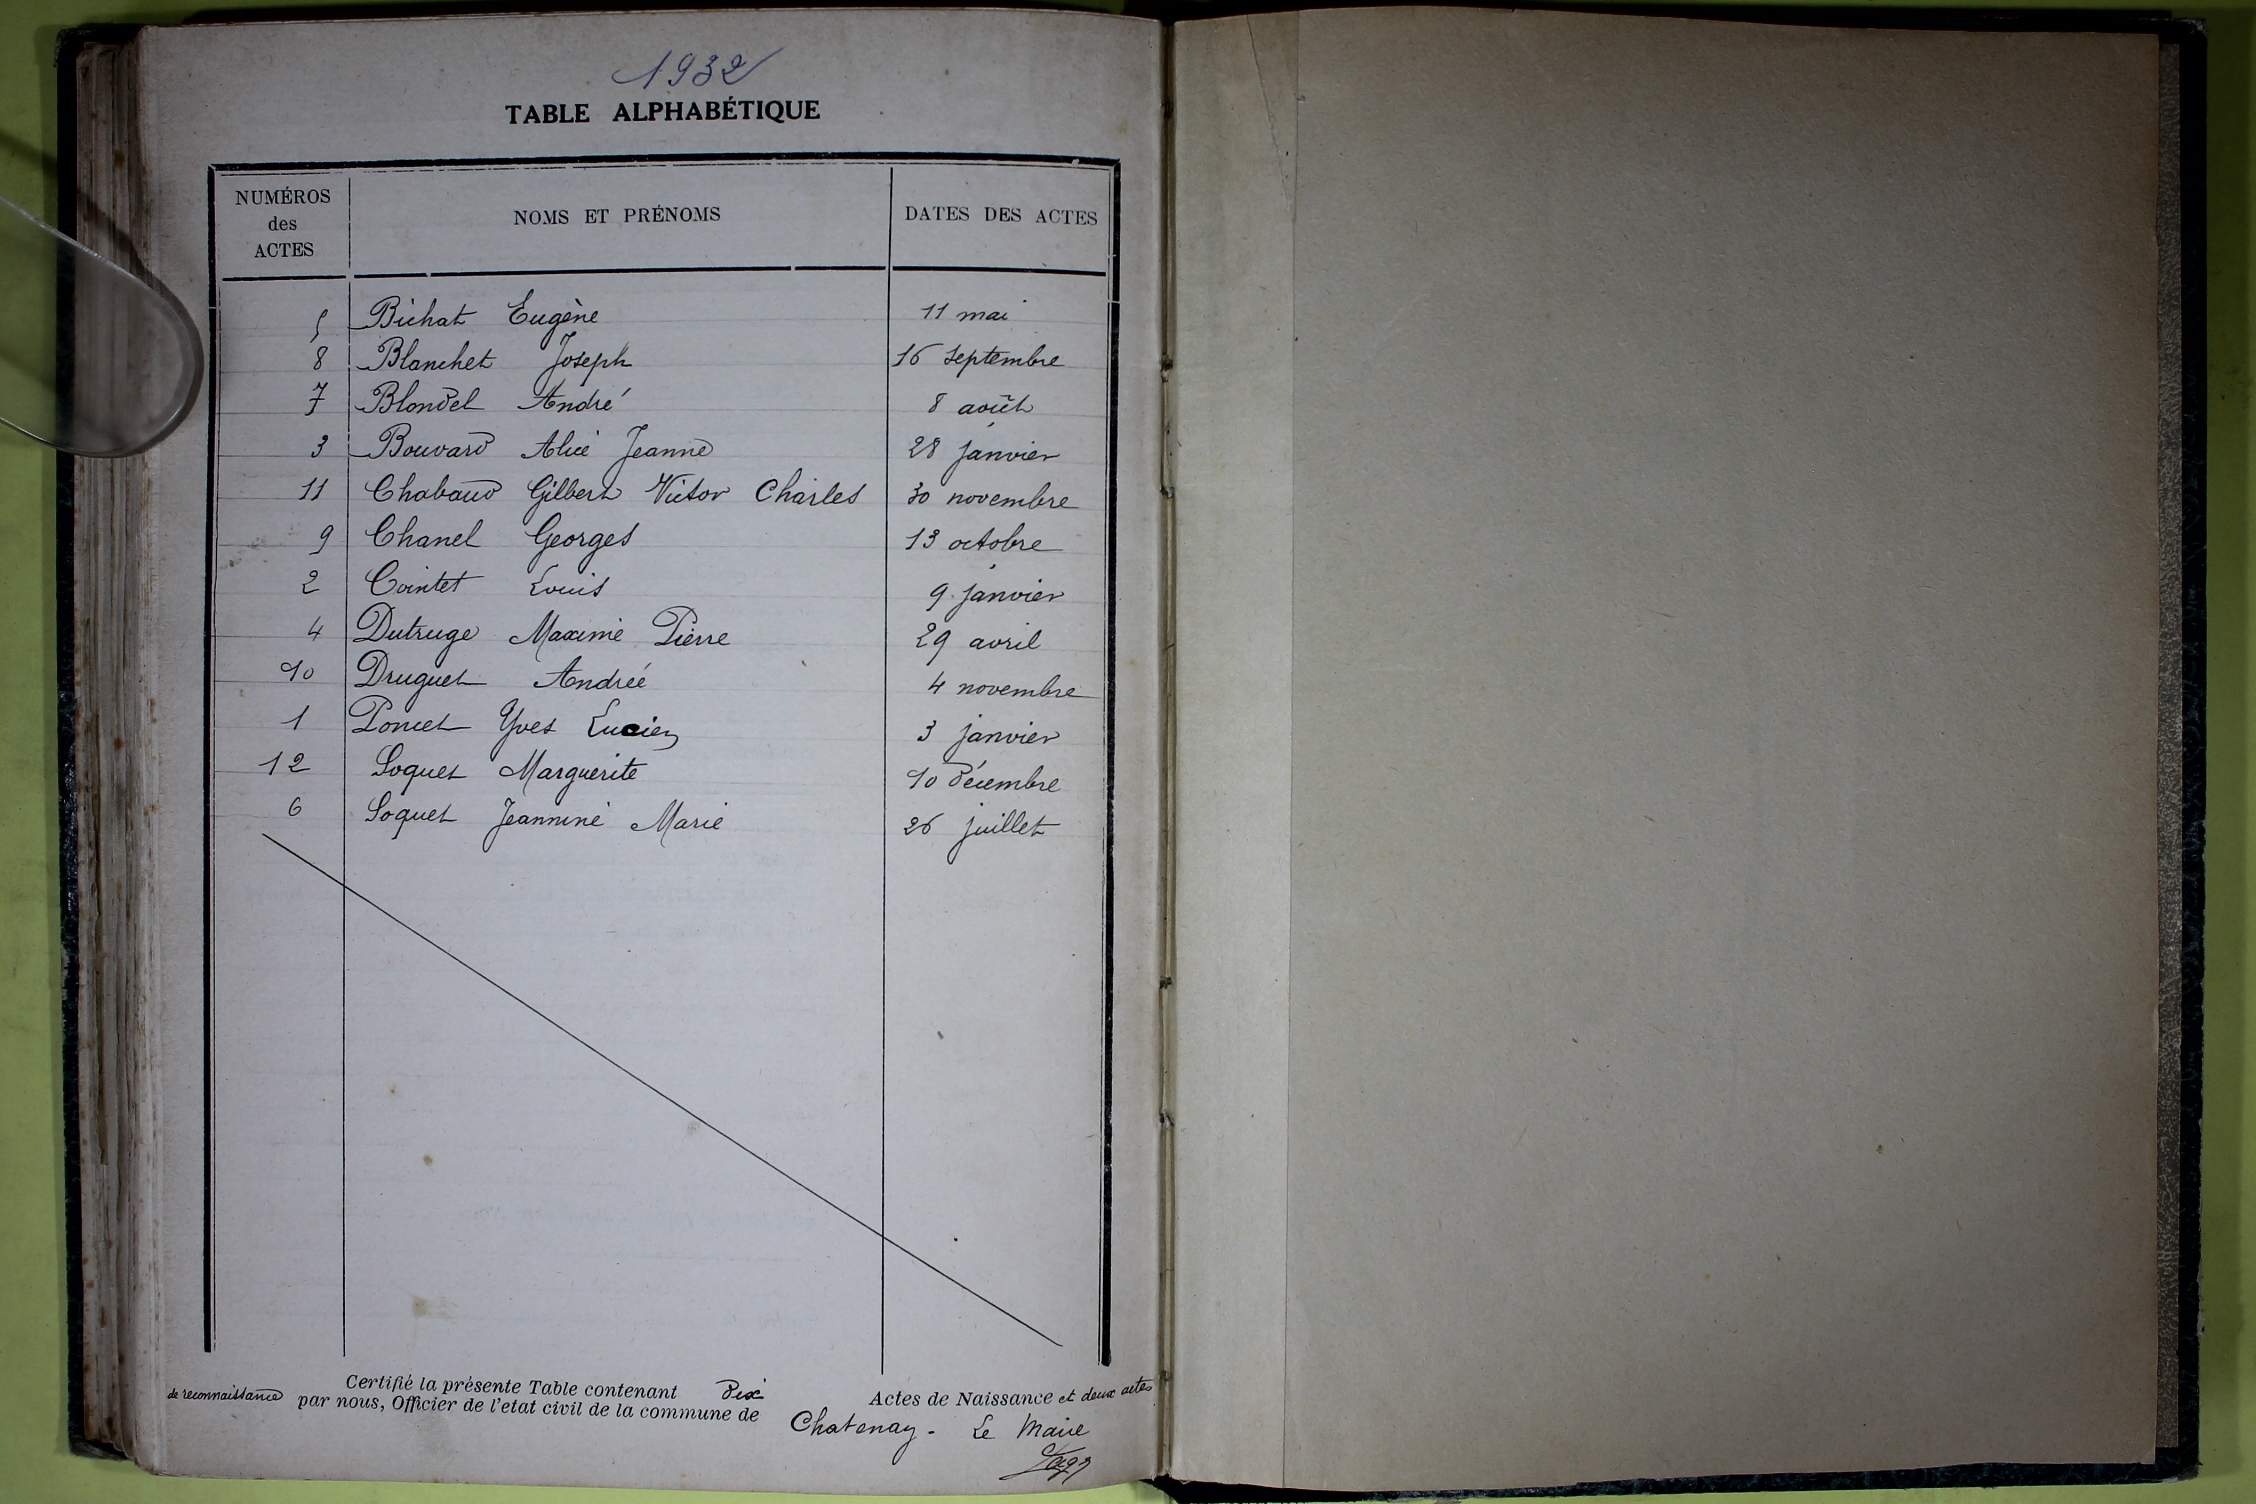 1932
TABLE ALPHABÉTIQUE
NUMÉROS des ACTES NOMS ET PRÉNOMS DATES DES ACTES
5 Bichat Eugène 11 mai
8 Blanchet Joseph 16 septembre
7 Blondel André 8 août
3 Bouvard Alice Jeanne 28 janvier
11 Chabaud Gilbert Victor Charles 30 novembre
9 Chanel Georges 13 octobre
2 Cointet Louis 9 janvier
4 Dutruge Maxime Pierre 29 avril
10 Druguet Andrée 4 novembre
1 Poncet Yves Lucien 3 janvier
12 Soquet Marguerite 10 décembre
6 Soquet Jeannine Marie 26 juillet
Certifié la présente Table contenant dix Actes de Naissance et deux actes
de reconnaissance par nous, Officier de l'etat civil de la commune de
Chatenay - Le Maire